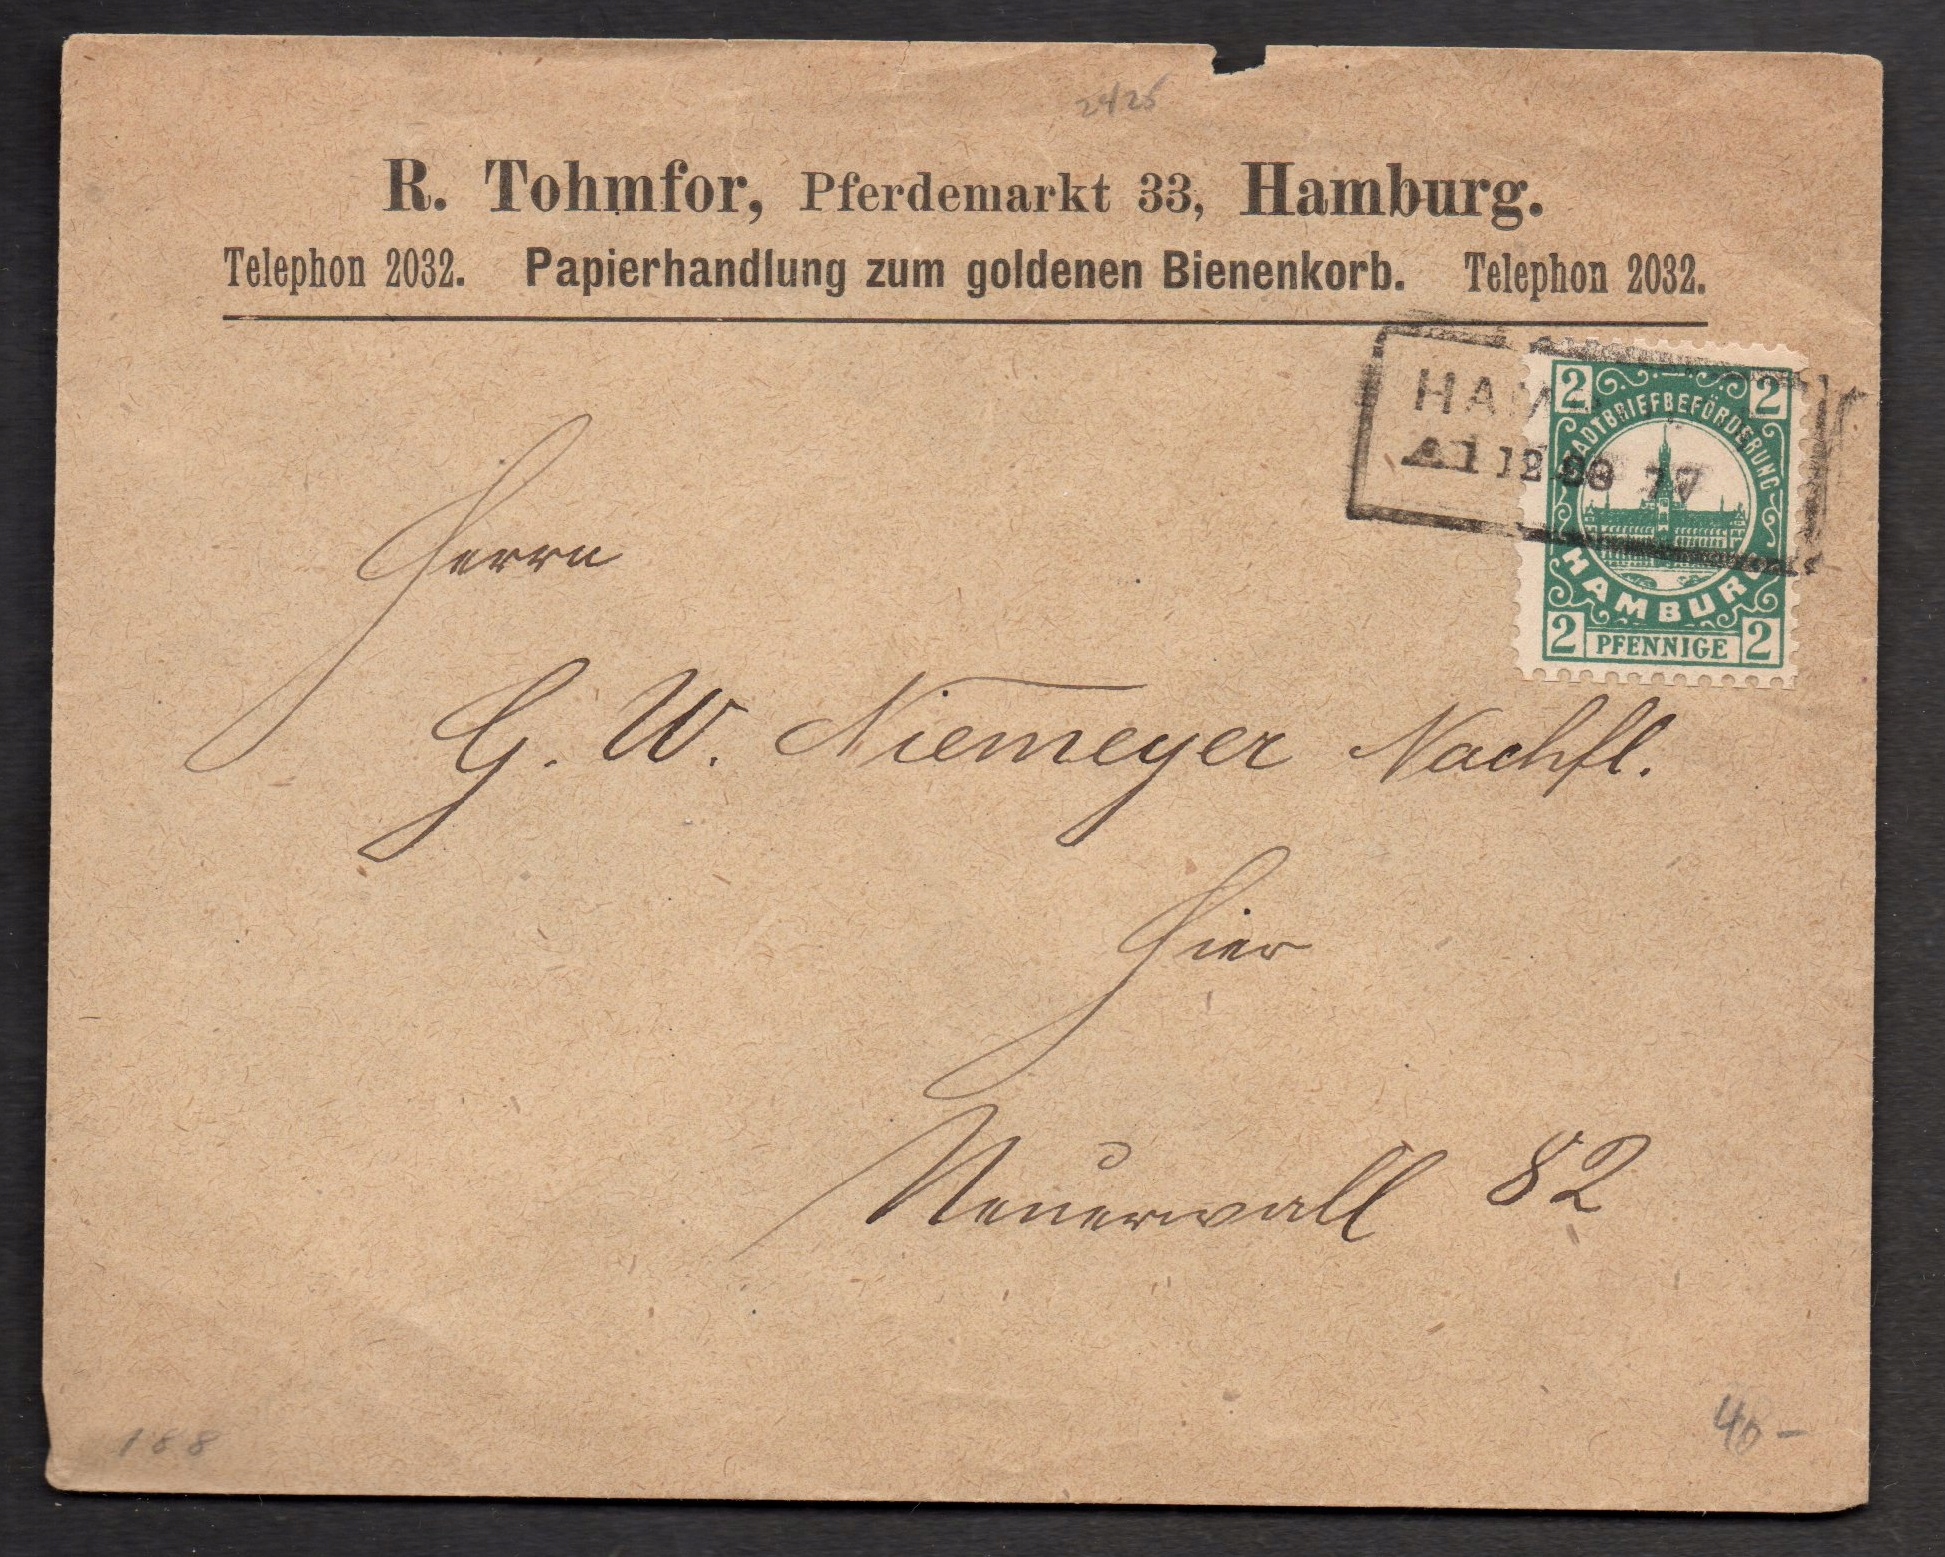 2425
R. Tohmfor, Pferdemarkt 33, Hamburg.
Telephon 2032. Papierhandlung zum goldenen Bienenkorb. Telephon 2032.
2 2
STADTBRIEFBEFÖRDERUNG
HAMBURG
2 PFENNIGE 2
HAM
12
Herrn
G. W. Niemeyer Nachfl.
Hier
Neuerwall 82
188
40-